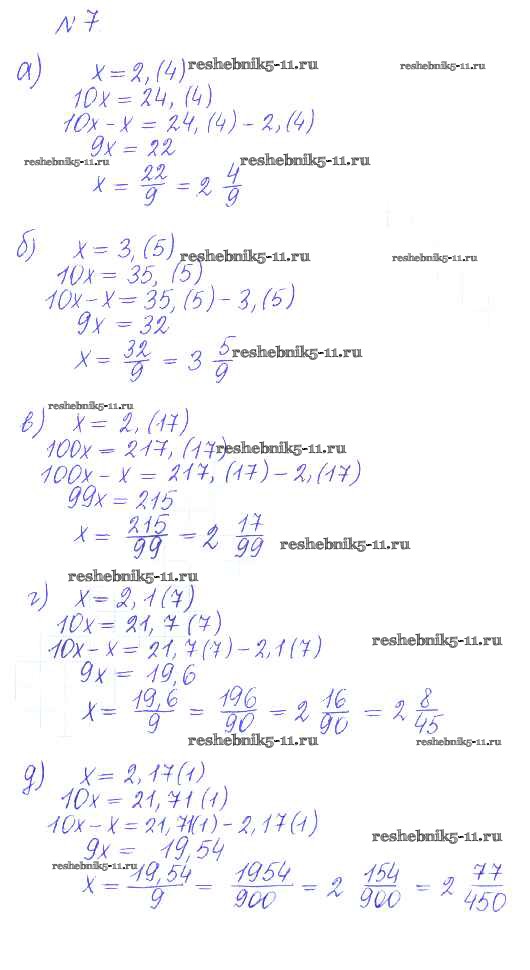 № 7
а) x = 2,(4) reshebnik5-11.ru reshebnik5-11.ru
10x = 24,(4)
10x - x = 24,(4) - 2,(4)
9x = 22
reshebnik5-11.ru reshebnik5-11.ru
x = 22/9 = 2 4/9
б) x = 3,(5) reshebnik5-11.ru reshebnik5-11.ru
10x = 35,(5)
10x - x = 35,(5) - 3,(5)
9x = 32
x = 32/9 = 3 5/9 reshebnik5-11.ru
reshebnik5-11.ru
в) x = 2,(17)
100x = 217,(17) reshebnik5-11.ru
100x - x = 217,(17) - 2,(17)
99x = 215
x = 215/99 = 2 17/99 reshebnik5-11.ru
reshebnik5-11.ru
г) x = 2,1(7)
10x = 21,7(7) reshebnik5-11.ru
10x - x = 21,7(7) - 2,1(7)
9x = 19,6
x = 19,6/9 = 196/90 = 2 16/90 = 2 8/45
reshebnik5-11.ru reshebnik5-11.ru
д) x = 2,17(1)
10x = 21,71(1)
10x - x = 21,71(1) - 2,17(1) reshebnik5-11.ru
9x = 19,54
reshebnik5-11.ru
x = 19,54/9 = 1954/900 = 2 154/900 = 2 77/450